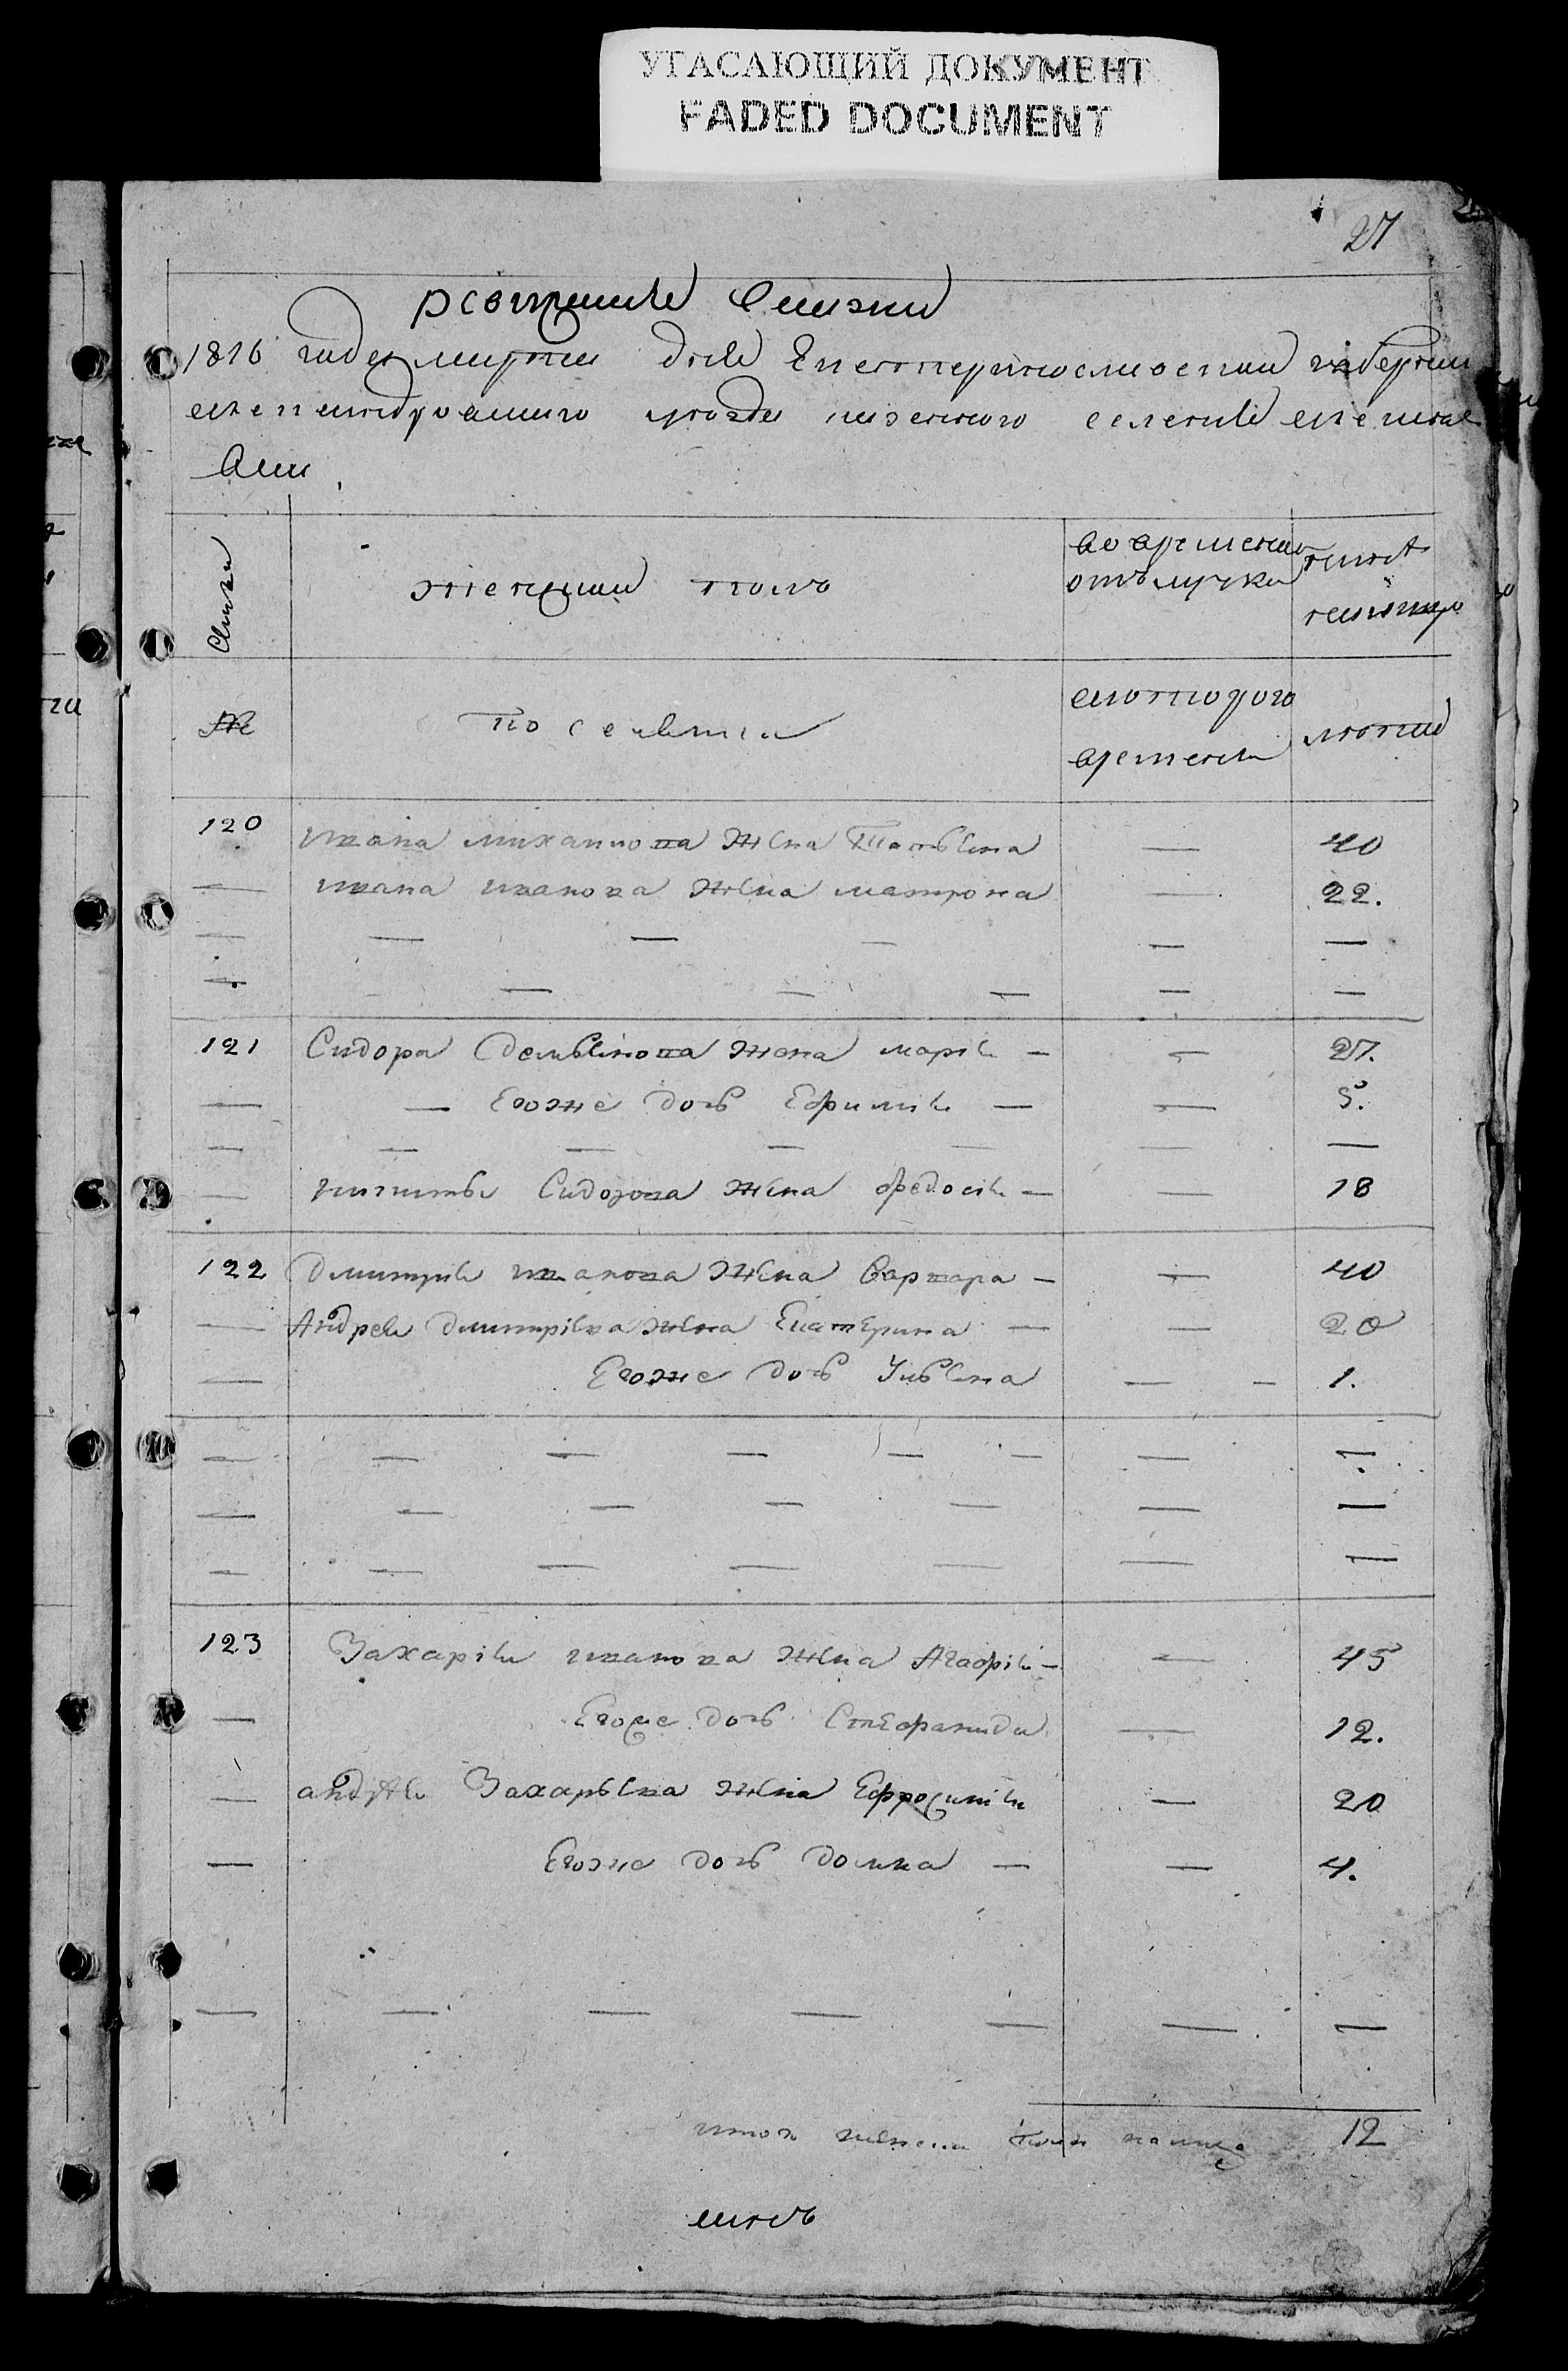 УГАСАЮЩИЙ ДОКУМЕНТ
FADED DOCUMENT
27
1816 года марта дня Екатеринославской губернии
александровского уезда казенного селения
семьи
женский полъ
во временной
отълучке
ныне
№
по семейки
скоторого
времени
летъ
120 ивана михаилова жена Татьяна — 40
— ивана иванова жена матрона — 22.
— — — — — —
— — — — — —
121 Сидора Демьянова жена марія — — 27.
— — Егоже дочь Ефимія — — 5.
— — — — — — —
— никиты Сидорова жена федосія — — 18
122 Дмитрія иванова жена Варвара — — 40
— Андрея дмитріева жена Екатерина — — 20
— Егоже дочь Ульяна — — 1.
— — — — — — — —
— — — — — — —
— — — — — — —
123 Захарія иванова жена Агафія — — 45
— Егоже дочь Стефанида — 12.
— андрея Захарьева жена Ефросинія — 20
— Егоже дочь домна — — 4.
— — — — — — —
итого женска пола налицо 12